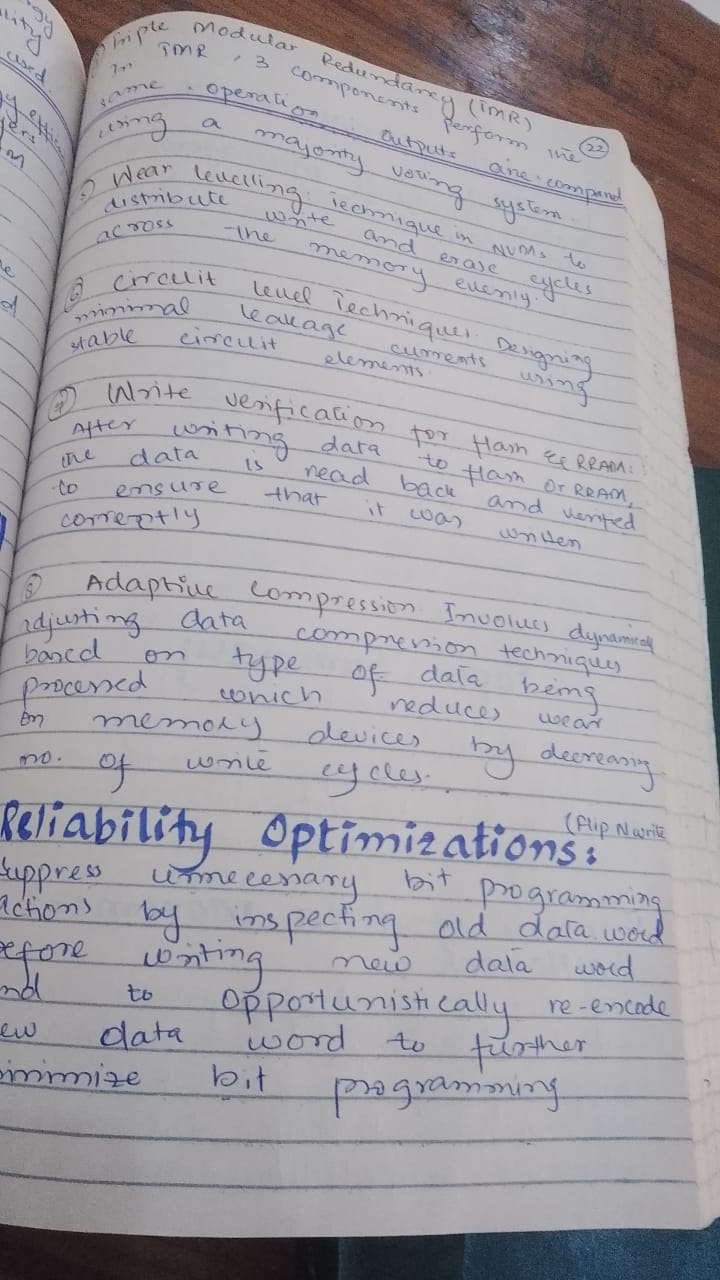 Triple Modular Redundancy (TMR)
In TMR, 3 components perform the
same operation. outputs are compared
using a majority voting system.
22
Wear levelling: Technique in NVMs to
distribute write and erase cycles
across the memory evenly.
⑥ Circuit level Techniques: Designing
minimal leakage currents using
stable circuit elements.
⑦ Write verification for flash & RRAM:
After writing data to flash or RRAM,
the data is read back and verified
to ensure that it was written
correctly
⑧ Adaptive Compression Involves dynamically
adjusting data compression techniques
based on type of data being
processed which reduces wear
on memory devices by decreasing
no. of write cycles.
Reliability Optimizations:
(Flip N write
Suppress unnecessary bit programming
actions by inspecting old data word
before writing new data word
and to opportunistically re-encode
new data word to further
minimize bit programming